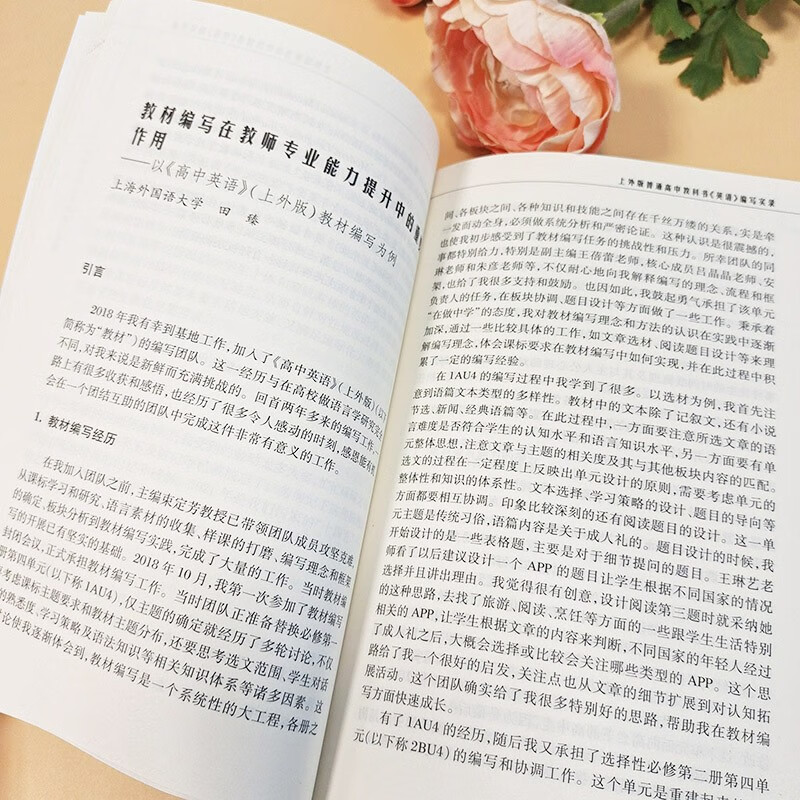 教材编写在教师专业能力提升中的
作用
——以《高中英语》(上外版)教材编写为例
上海外国语大学 田臻
引言
2018年我有幸到基地工作,加入了《高中英语》(上外版)(以下
简称为“教材”)的编写团队。这一经历与在高校做语言学研究完全
不同,对我来说是新鲜而充满挑战的。回首两年多来的编写工作,一
路上有很多收获和感悟,也经历了很多令人感动的时刻,感恩能有机
会在一个团结互助的团队中完成这件非常有意义的工作。
1. 教材编写经历
在我加入团队之前,主编束定芳教授已带领团队成员攻坚克难,
从课标学习和研究、语言素材的收集、样课的打磨、编写理念和框架
的确定,板块分析到教材编写实践,完成了大量的工作。当时教材编
写的开展已有坚实的基础。2018年10月,我第一次参加了教材编写
封闭会议,正式承担教材编写工作。当时团队正准备替换必修第一
册第四单元(以下称1AU4),仅主题的确定就经历了多轮讨论,不仅
考虑课标主题要求和教材主题分布,还要思考选文范围、学生对话
的熟悉度、学习策略及语法知识等相关知识体系等诸多因素。这
论使我逐渐体会到,教材编写是一个系统性的大工程,各册之
上外版普通高中教科书《英语》编写实录
间、各板块之间、各种知识和技能之间存在千丝万缕的关系,实是牵
一发而动全身,必须做系统分析和严密论证。这种认识是很震撼的,
也使我初步感受到了教材编写任务的挑战性和压力。所幸团队的同
事都特别给力,特别是副主编王蓓蕾老师,核心成员吕晶晶老师、安
琳老师和朱彦老师等,不仅耐心地向我解释编写的理念、流程和框
架,也给了我很多支持和鼓励。也因如此,我鼓起勇气承担了该单元
负责人的任务,在板块协调、题目设计等方面做了一些工作。秉承着
“在做中学”的态度,我对教材编写理念和方法的认识在实践中逐渐
加深,通过一些比较具体的工作,如文章选材、阅读题目设计等来理
解编写理念,体会课标要求在教材编写中如何实现,并在此过程中积
累了一定的编写经验。
在1AU4的编写过程中我学到了很多。以选材为例,我首先注
意到语篇文本类型的多样性。教材中的文本除了记叙文,还有小说
节选、新闻、经典语篇等。在此过程中,一方面要注意所选文章的语
言难度是否符合学生的认知水平和语言知识水平,另一方面要有单
元整体思想,注意文章与主题的相关度及其与其他板块内容的匹配。
选文的过程在一定程度上反映出单元设计的原则,需要考虑单元的
整体性和知识的体系性。文本选择、学习策略的设计、题目的导向等
方面都要相互协调。印象比较深刻的还有阅读题目的设计。这一单
元主题是传统习俗,语篇内容是关于成人礼的。题目设计的时候,我
开始设计的是一些表格题,主要是对于细节提问的题目。王琳艺老
师看了以后建议设计一个APP的题目让学生根据不同国家的情况
选择并且讲出理由。我觉得很有创意,设计阅读第三题时就采纳她
的这种思路,去找了旅游、阅读、烹饪等方面的一些跟学生生活特别
相关的APP,让学生根据文章的内容来判断,不同国家的年轻人经过
了成人礼之后,大概会选择或比较会关注哪些类型的APP。这个思
路给了我一个很好的启发,关注点也从文章的细节扩展到对认知拓
展活动。这个团队确实给了我很多特别好的思路,帮助我在教材编
写方面快速成长。
有了1AU4的经历,随后我又承担了选择性必修第二册第四单
元(以下称2BU4)的编写和协调工作。这个单元是重建起来的